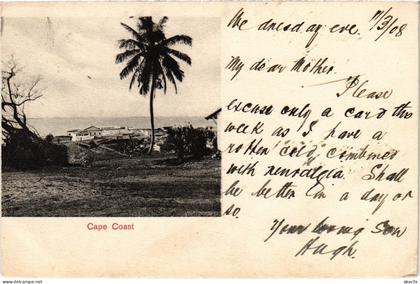 Wednesday eve. 11/3/08
My dear Mother,
Please
excuse only a card this
week as I have a
rotten "cold" combined
with neuralgia. Shall
be better in a day or
so.
Your loving Son
Hugh.
Cape Coast